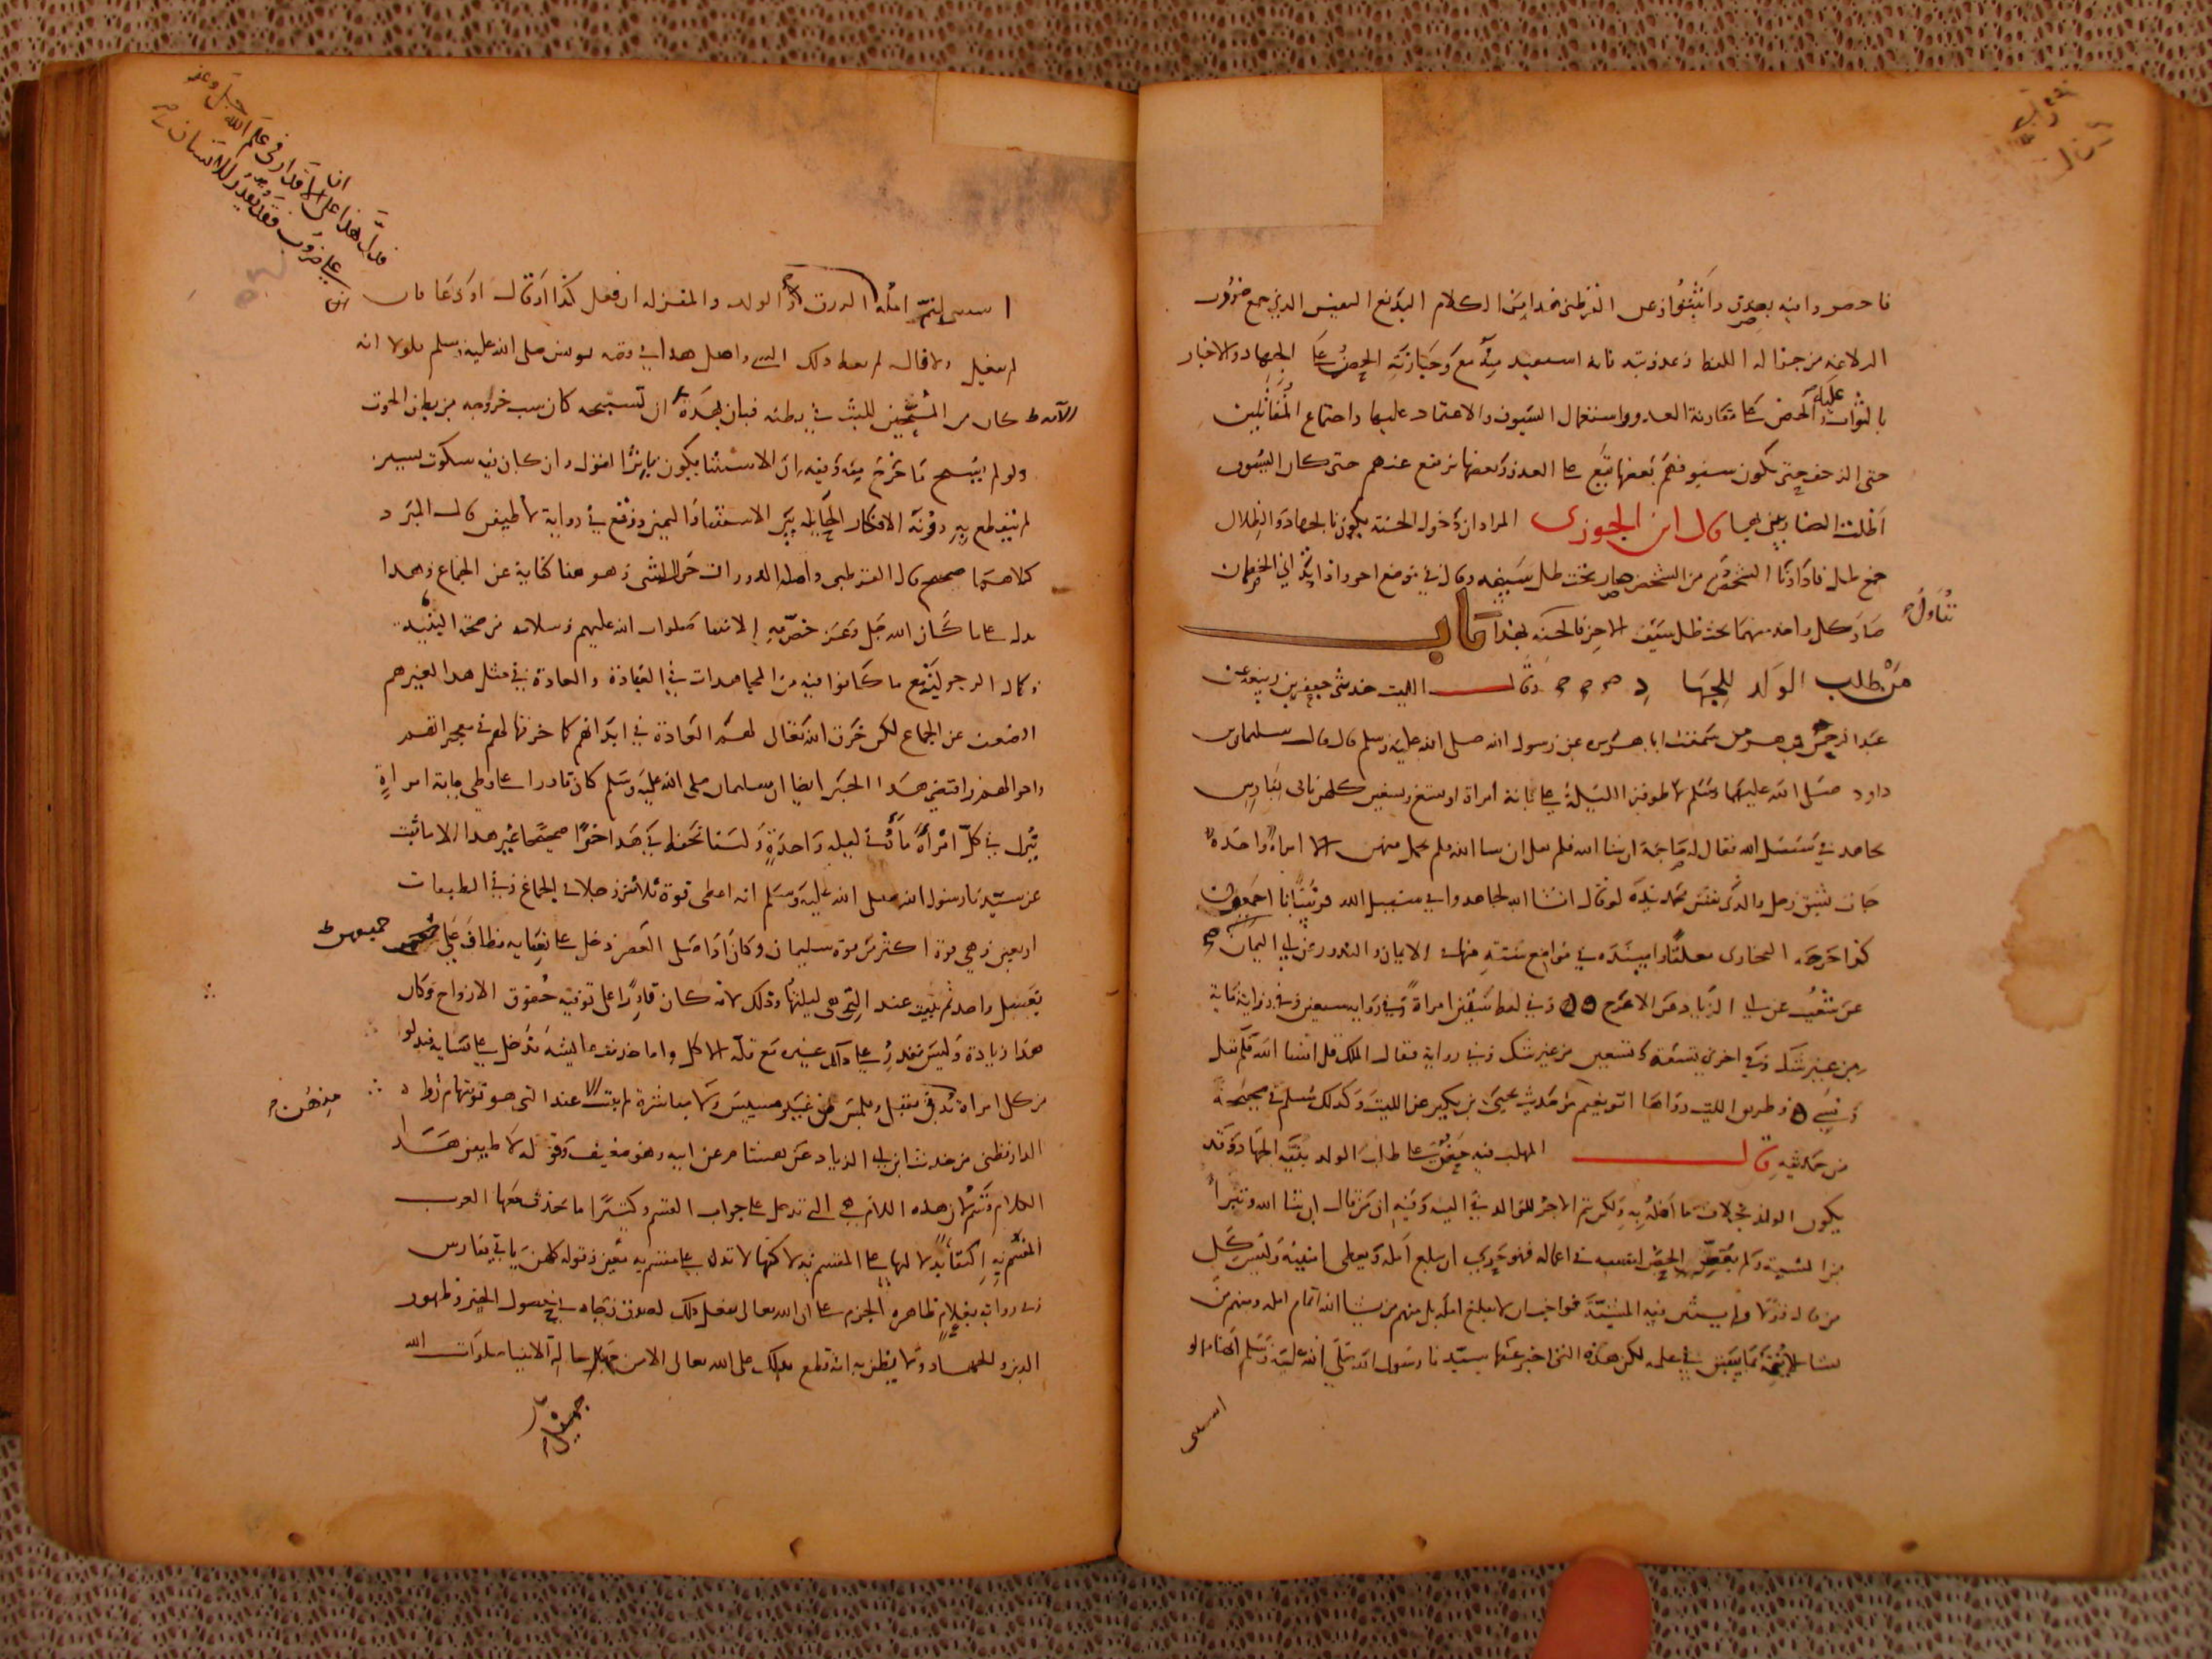 فاحصروا فيه بصدق واثبتوا وعن القرطبي هذا من الكلام البديع النفيس الذي جمع ضروب
البلاغة من جزالة اللفظ وعذوبته فانه استفيد منه مع وجازته الحض على الجهاد والاخبار
بالثواب عليه والحض على مقاربة العدو واستعمال السيوف والاعتماد عليها واجتماع المقاتلين
حتى الزحف حتى تكون سيوفهم بعضها تقع على العدو وبعضها ترتفع عنهم حتى كان السيوف
اظلت الضاربين بها قال ابن الجوزي المراد ان دخول الجنة يكون بالجهاد والظلال
جمع ظل فاذا دنا الشخص من الشخص صار تحت ظل سيفه وقال في موضع اخر واذا تدانى الخصمان
صار كل واحد منهما تحت ظل سيف الاخر فالجنة بهذا تناول باب
من طلب الولد للجهاد وقال الليث حدثني جعفر بن ربيعة عن
عبد الرحمن بن هرمز سمعت ابا هريرة عن رسول الله صلى الله عليه وسلم قال قال سليمان بن
داود صلى الله عليهما وسلم لاطوفن الليلة على مائة امراة او تسع وتسعين كلهن ياتي بفارس
يجاهد في سبيل الله فقال له صاحبه ان شا الله فلم يقل ان شا الله فلم يحمل منهن الا امراة واحدة
جات بشق رجل والذي نفس محمد بيده لو قال ان شا الله لجاهدوا في سبيل الله فرسانا اجمعون
كذا اخرجه البخاري معلقا واسنده في مواضع ستة منها الايمان والنذور عن ابي اليمان
عن شعيب عن ابي الزناد عن الاعرج وفي لفظ ستين امراة وفي رواية سبعين وفي رواية مائة
من غير شك وفي اخرى تسعة وتسعين من غير شك وفي رواية فقال الملك قل ان شا الله فلم يقل
ونسي وطريق الليث رواها ابو نعيم من حديث يحيى بن بكير عن الليث وكذلك مسلم في صحيحه
من حديثه قال المهلب فيه حض على طلب الولد بنية الجهاد وقد
يكون الولد بخلاف ما امله به ولكن تم الاجر للوالد في النية وفيه ان من قال ان شا الله وتبرا
من المشية ولم يعط الحظ لنفسه في اعماله فهو حري ان يبلغ امله ويعطى امنيته وليس كل
من قال قولا ولم يستثن فيه المشية فواجب ان لا يبلغ امله بل منهم من يشا الله اتمام امله ومنهم من
يشا ان لا يتمه بما سبق في علمه لكن هذه التي اخبر عنها سيدنا رسول الله صلى الله عليه وسلم انها لو
استثنى
استثنى لتم امله الرزق او الولد والمنزلة ان فعل كذا او قال او دعا فان
لم يفعل ولا قال لم يعط ذلك الشي واصل هذا في قصة يونس صلى الله عليه وسلم فلولا انه
كان من المسبحين للبث في بطنه فبان بهذه الآية ان تسبيحه كان سبب خروجه من بطن الحوت
ولو لم يسبح ما خرج منه وفيه ان الاستثنا يكون باثر القول وان كان فيه سكوت يسير
لم ينقطع به دونه الافكار الحائلة بين الاستثنا واليمين ووقع في رواية لاطيفن قال المبرد
كلاهما صحيح قال القرطبي واصله الدوران حول الشي وهو هنا كناية عن الجماع وهذا
يدل على ما كان الله جل وعز خص به الانبيا صلوات الله عليهم وسلامه من صحة البنية
وكمال الرجولية مع ما كانوا فيه من المجاهدات في العبادة والعادة في مثل هذا لغيرهم
الضعف عن الجماع لكن خرق الله تعالى لهم العادة في ابدانهم كما خرقها لهم في معجزاتهم
واحوالهم واقتضى هذا الخبر ايضا ان سليمان صلى الله عليه وسلم كان قادرا على وطي مائة امراة
ينزل في كل امراة ماؤه في ليلة واحدة ولسنا نحفظ في هذا خبرا صحيحا غير هذا الا ما ثبت
عن سيدنا رسول الله صلى الله عليه وسلم انه اعطى قوة ثلاثين رجلا في الجماع وفي الطبقات
اربعين وهي قوة اكثر من قوة سليمان وكان اذا صلى العصر دخل على نسائه فطاف على جميعهن
بغسل واحد ثم يبيت عند التي هي ليلتها وذلك لانه كان قادرا على توفية حقوق الازواج وكان
هذا زيادة وليس يقدر على ذلك غيره مع قلة الاكل واما حديث عائشة يدخل على نسائه فيدنو
من كل امراة منهن فيقبل ويلمس من غير مسيس ولا مباشرة ثم يبيت عند التي هو يومها رواه
الدارقطني من حديث ابن ابي الزناد عن هشام عن ابيه وهو ضعيف وقوله لاطيفن هذا
الكلام قسم لان هذه اللام هي التي تدخل على جواب القسم وكثيرا ما تحذف معها العرب
المقسم به اكتفا بدلالتها على المقسم به لا كنها لا تدل على مقسم به معين وقوله كلهن ياتي بفارس
وفي رواية بغلام ظاهره الجزم على ان الله تعالى يفعل ذلك لصدق رجائه في حصول الخير وظهور
الدين والجهاد ولا يظن به انه قطع بذلك على الله تعالى الا من جهل حالة الانبيا صلوات الله
فدل هذا على ان الاقدار في علم الله جل وعز
على ضروب فقد يقدر للانسان
جميعهن
منهن